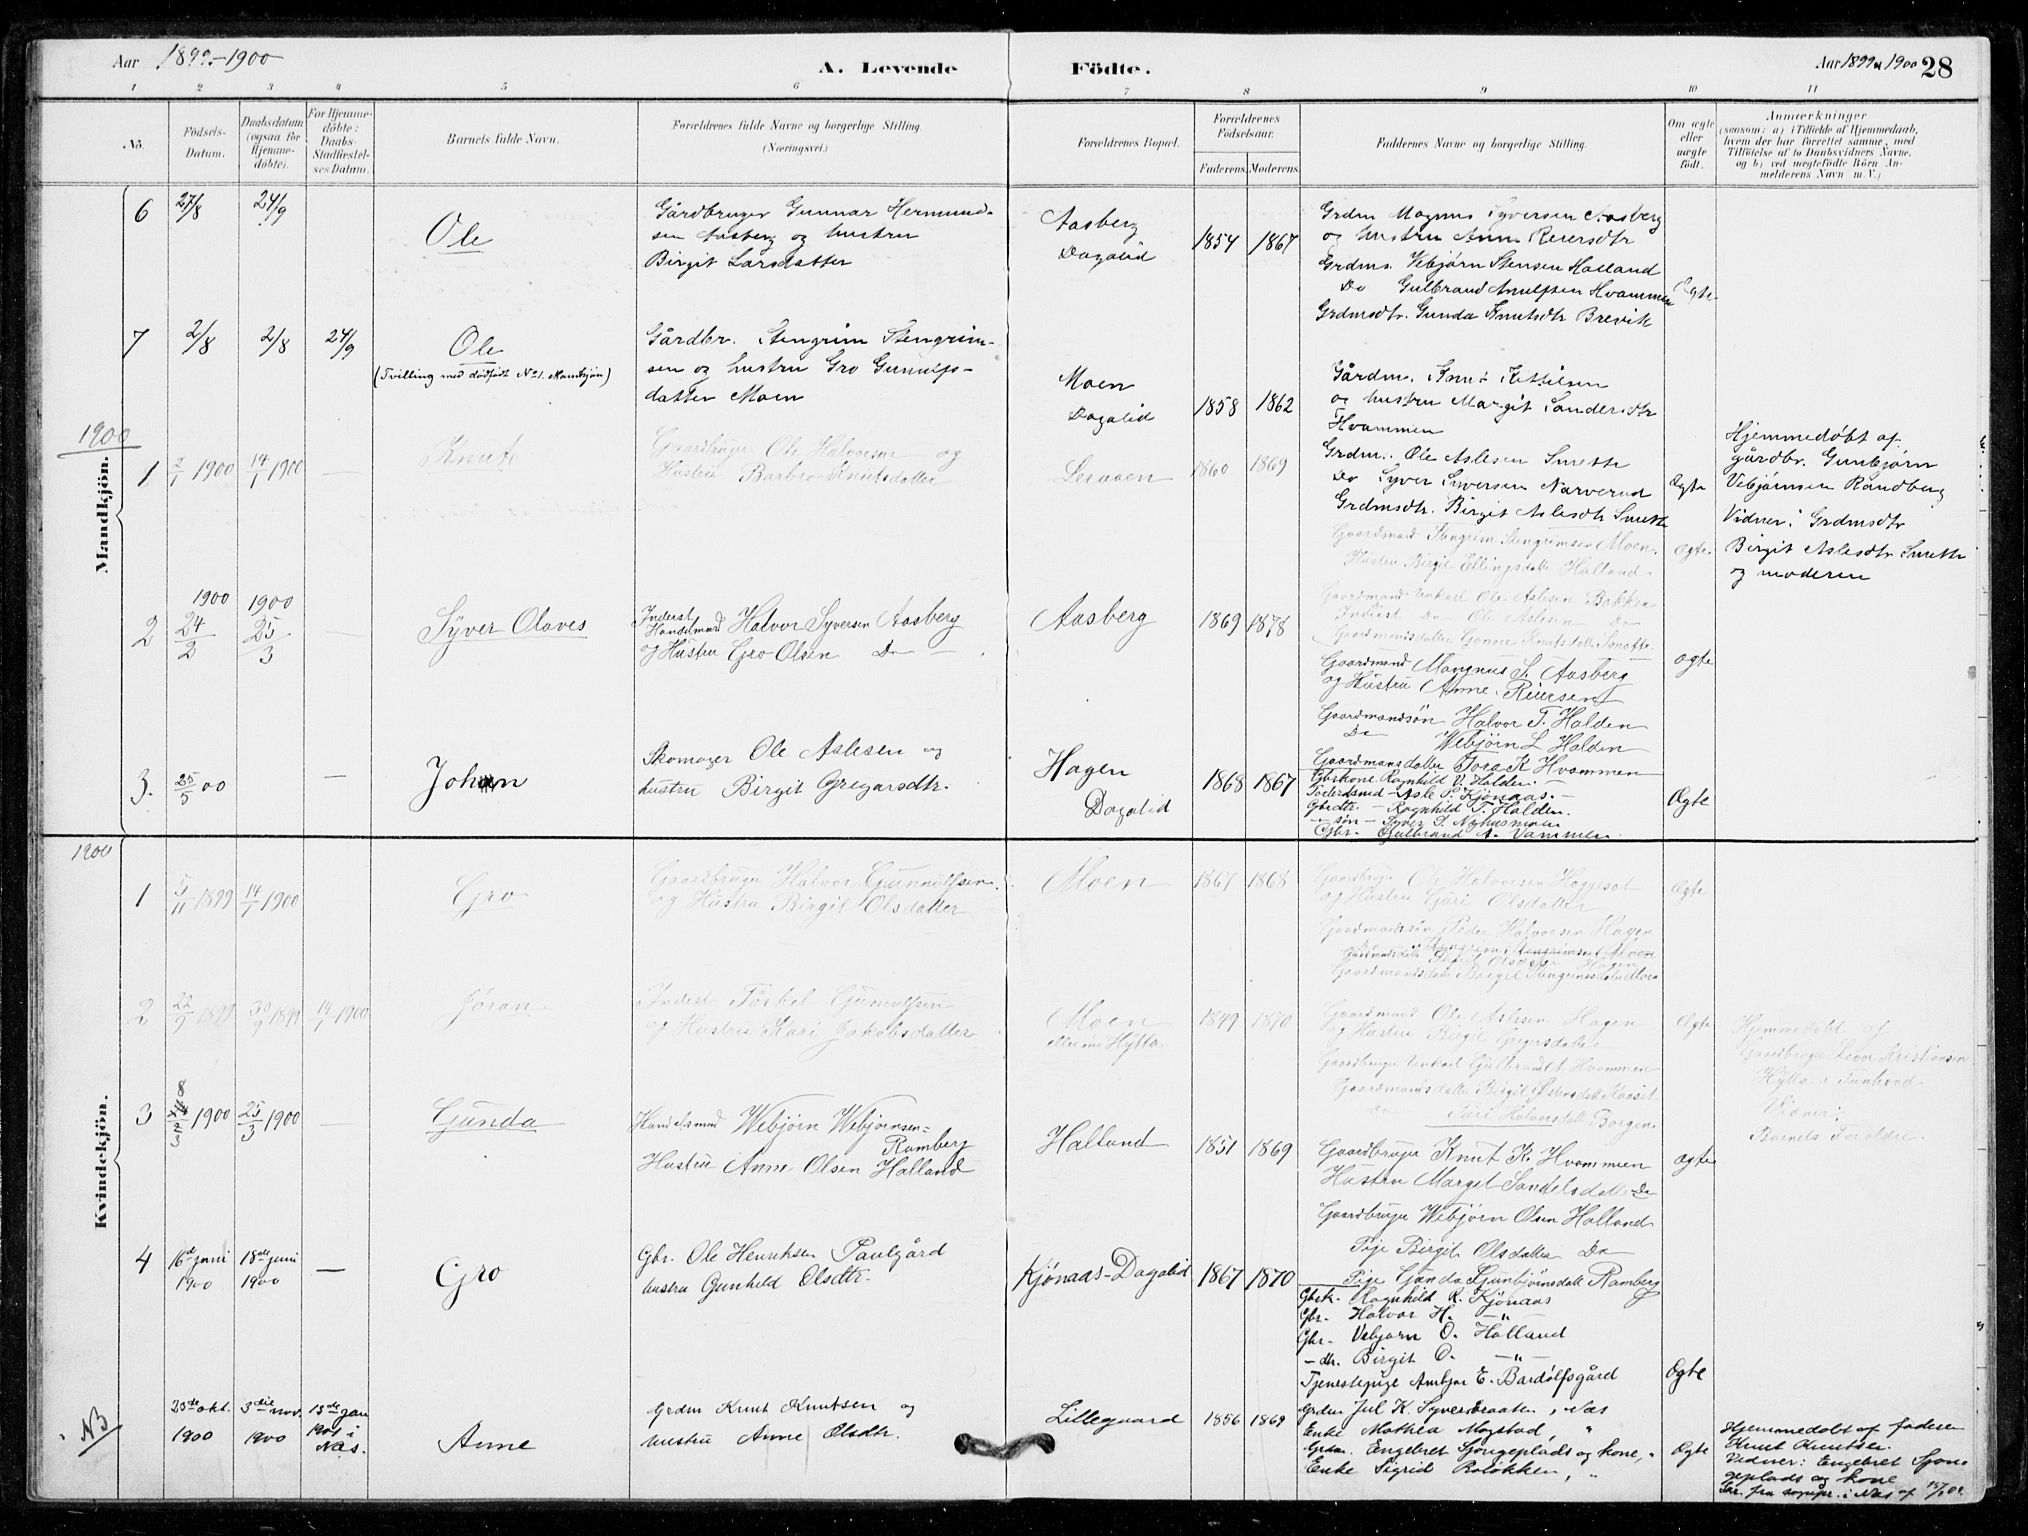 Aar 1899-1900
A. Levende
Födte.
Aar 1899 1900 28
1 2 3 4 5 6 7 8 9 10 11
No.
Födsels-
Datum.
Daabsdatum
(ogsaa for
Hjemme-
döbte).
For Hjemme-
döbte:
Daabs-
Stadfæstel-
ses Datum.
Barnets fulde Navn.
Forældrenes fulde Navne og borgerlige Stilling.
(Næringsvei.)
Forældrenes Bopæl.
Forældrenes
Födselsaar.
Faderens. Moderens.
Faddernes Navne og borgerlige Stilling.
Om ægte
eller
uægte
födt.
Anmærkninger
(saasom: a) i Tilfælde af Hjemmedaab,
hvem der har forrettet samme, med
Tilföielse af to Daabsvidners Navne,
og b) ved uægtefödte Börn An-
melderens Navn m. V.)
Mandkjön.
6 27/8 24/9
Ole
Gårdbruger Gunnar Hermund-
sen Aasberg og hustru
Birgit Larsdatter
Aasberg
Dagalid
1854 1867
Grdm Magnus Syversen Aasberg
og hustru Anne Reiersdtr
Grdms. Vebjørn Stensen Halland
Do Gulbrand Arnulfsen Hvammen
Grdmsdtr. Gunda Knutsdtr Brevik
Ægte
7 2/8 2/8 24/9
Ole
(Tvilling med dødfødt No 1. Mandkjøn)
Gårdbr. Stengrim Stengrim-
sen og hustru Gro Gunulfs-
datter Moen
Moen
Dagalid
1858 1862
Gårdm. Knut Kittilsen
og hustru Margit Sandersdtr
Hvammen
Grdm. Ole Aslesen Smette
Do Syver Syversen Narverud
Grdmsdtr. Birgit Aslesdtr Smette
Ægte
Hjemmedøbt af
gårdbr. Gunbjørn
Vebjørnsen Randberg
Vidner: Grdmsdtr
Birgit Aslesdtr Smette
og moderen
1900
1 2/1 1900 14/1 1900 —
Knut
Gaardbruger Ole Halvorsen og
Hustru Barbro Knutsdatter
1860 1869
Gaardmand Stengrim Stengrimsen Moen
Hustru Birgit Ellingsdatter Halland
Gaardmand Unkarl Ole Aslesen Bakken
Inderst Do Ole Aslesen Do
Gaardmandsdatter Gonne Knutsdatter Smette
ægte
2 1900 24/2 1900 25/3 —
Syver Olaves
Inderst
Handelsmand Halvor Syversen Aasberg
og Hustru Gro Olsen Do —
Aasberg
1869 1878
Gaardmand Mangnus S. Aasberg
og Hustru Anne Reiersen
Gaardmandsøn Halvor T. Halden
Do Webjørn L Halden
Gaardmandsdatter Tora K Hvammen
ægte
3. 25/5 00 —
Johan
Skomager Ole Aslesen og
hustru Birgit Gregarsdtr.
Hagen
Dagalid
1868 1867
Gbrkone Ragnhild V. Halden
Asle P. Kjønaas.
Gbrdtr. — Ragnhild T. Halden.
— søn — Syver S. Nyhusmoen
Gbr. Gulbrand A. Vammen
Ægte
Kvindekjön.
1900
1 5/11 1899 14/1 1900
Gro
Gaardbruger Halvor Gunnulfsen
og Hustru Birgit Olsdatter
Moen
1867 1868
Gaardbruger Ole Halvorsen
og Hustru Guri Olsdatter
Gaardmandssøn Peder Halvorsen Hagen
Do Stengrim Stengrimsen Moen
Gaardmandsdatter Birgit Stengrimsdatter Moen
ægte
2 22/9 1899 30/9 1899 14/1 1900
Jøran
Inderst Torkel Gunnulfsen
og Hustru Kari Jakobsdatter
Moen
Hytta
1849 1870
Gaardmand Ole Aslesen Hagen
og Hustru Birgit Gregersdatter
Gaardbruger Unkarl Gulbrandt Hvammen
Gaardmandsdatter Birgit
Do Guri Halvorsdatter Borgen
ægte
Hjemmedøbt af
Gaardbruger Levor Kristiansen
Hytta i Tunhovd
Vidner:
Barnets Foreldre
3 1900 25/3 1900 —
Gunda
Handelsmand Webjørn Webjørnsen
Ramberg
Hustru Anne Olsen Halland
Halland
1851 1869
Gaardbruger Knut K. Hvammen
Hustru Marget Sandelsdatter Do
Gaardbruger Webjørn Olsen Halland
Pige Birgit Olsdatter Do
Pige Gunda Gunbjørnsdatt Ramberg
ægte
4 16de juni 1900 18de juni 1900 —
Gro
Gbr. Ole Henriksen Paulgård
hustru Gunhild Olsdtr.
Kjønaas-Dagalid
1867 1870
Gbrk. Ragnhild R. Kjønaas
Gbr. Halvor H. —„—
Gbr. Vebjørn O. Halland
— dtr. Birgit O. —„—
Tjenestepige Ambjør E. Bardølfsgård
Ægte
NB
25de okt. 1900 3die nov. 1900 13de jan 1901 i Næs.
Anne
Grdm Knut Knutsen og
hustru Anne Olsdtr.
Lillegaard
1856 1869
Grdm Jul K. Syverbraaten, Næs
Enke Mathea Magstad, „
Grdm. Engebret Sjongeplads og kone, „
Enke Sigrid Roløkken, „
Ægte
Hjemmedøbt af faderen
Knut Knutsen.
Vidner: Engebret Sjon-
geplads og kone